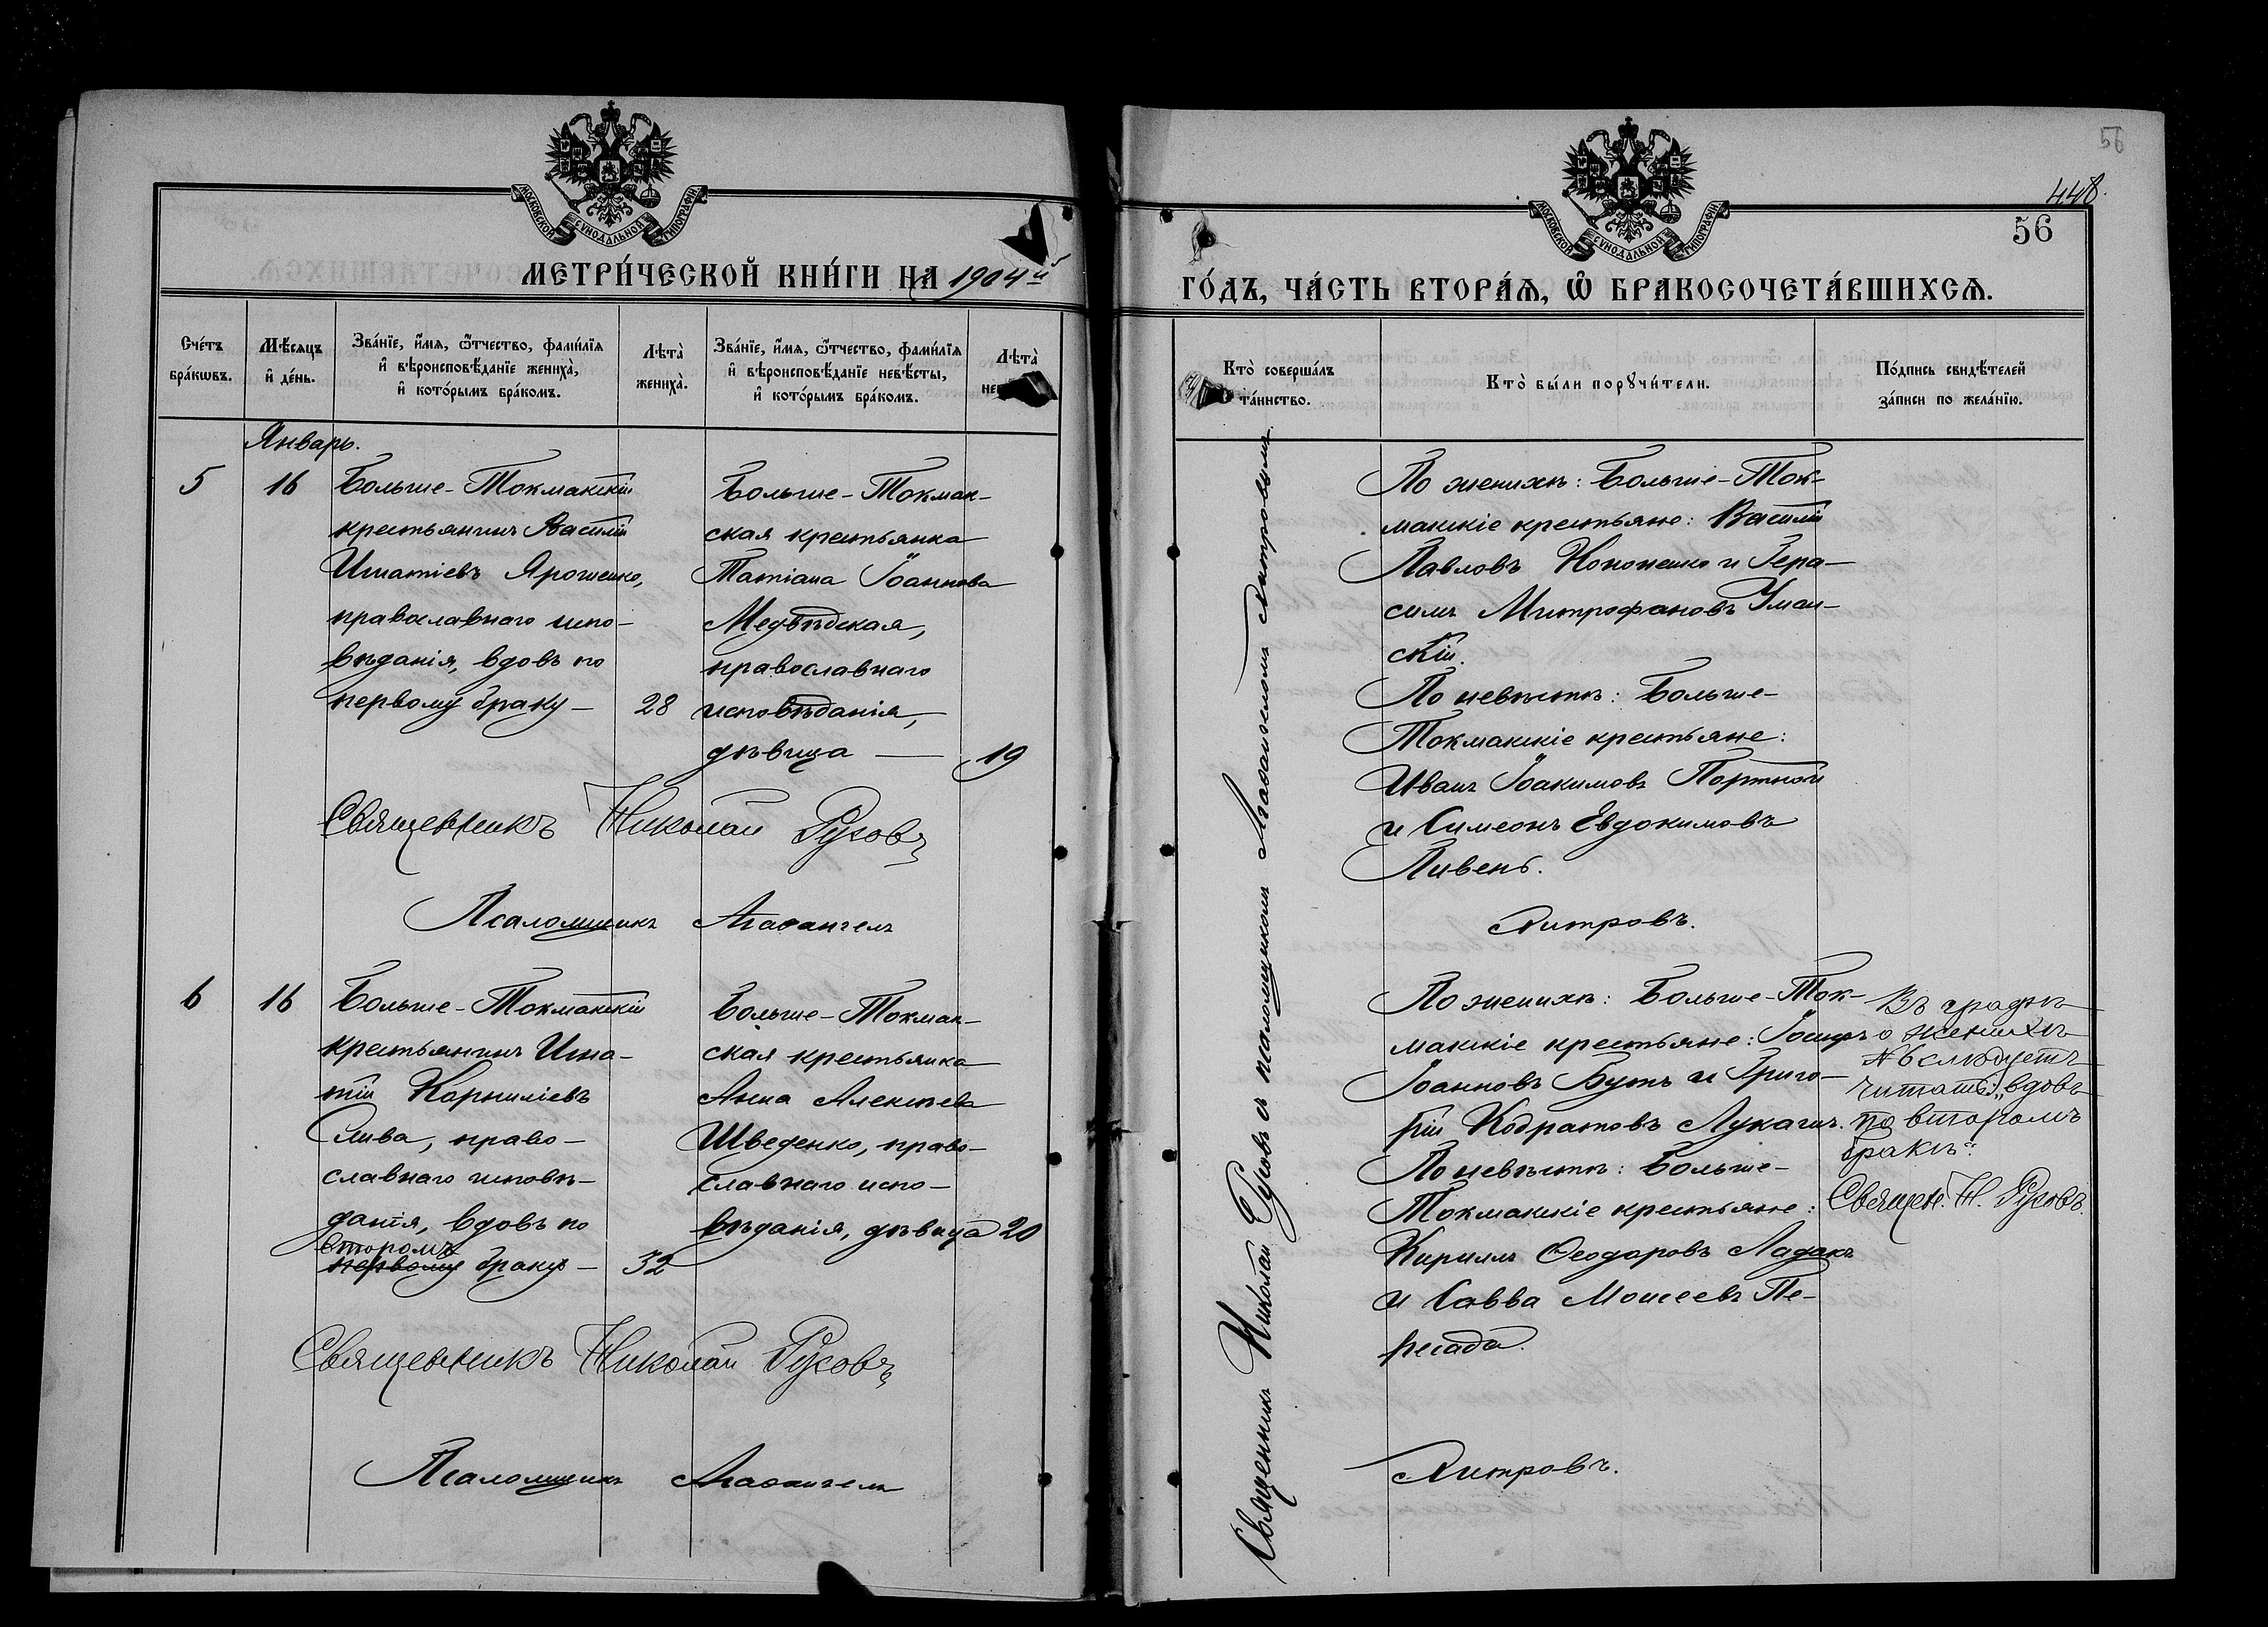 56
448.
56
МОСКОВСКОЙ СѴНОДАЛЬНОЙ ТИПОГРАФІИ
МЕТРИ́ЧЕСКОЙ КНИ́ГИ НА 1904й
Сче́тъ бра́кѡвъ.
Мѣ́сяцъ и҆ де́нь.
Зва́нїе, и҆́мя, ѻ҆́тчество, фами́лїя
и҆ вѣроисповѣ́данїе жениха̀,
и҆ кото́рымъ бра́комъ.
Лѣта̀ жениха̀.
Зва́нїе, и҆́мя, ѻ҆́тчество, фами́лїя
и҆ вѣроисповѣ́данїе невѣ́сты,
и҆ кото́рымъ бра́комъ.
Лѣта̀
Январь.
5
16
Больше-Токмакскій
крестьянинъ Василій
Игнатіевъ Ярошенко,
православнаго испо-
вѣданія, вдовъ по
первому браку —
28
Больше-Токмак-
ская крестьянка
Татіана Іоаннова
Медвѣдская,
православнаго
исповѣданія,
дѣвица —
19
Священникъ Николай Рузовъ
Псаломщикъ Агаѳангелъ
6
16
Больше-Токмакскій
крестьянинъ Игна-
тій Корниліевъ
Слива, право-
славнаго исповѣ-
данія, вдовъ по
второмъ
первому браку —
32
Больше-Токмак-
ская крестьянка
Анна Алексѣева
Шведенко, право-
славнаго испо-
вѣданія, дѣвица
20
Священникъ Николай Рузовъ
Псаломщикъ Агаѳангелъ
МОСКОВСКОЙ СѴНОДАЛЬНОЙ ТИПОГРАФІИ
ГО́ДЪ, ЧА́СТЬ ВТОРА́Я, Ѽ БРАКОСОЧЕТА́ВШИХСЯ.
Кто̀ соверша́лъ
та́инство.
Кто̀ бы́ли порꙋчи́тели.
По́дпись свидѣ́телей
за́писи по жела́нїю.
Священникъ Николай Рузовъ съ псаломщикомъ Агаѳангеломъ Дитровымъ.
По женихѣ: Больше-Ток-
макскіе крестьяне: Василій
Павловъ Кононенко и Гера-
симъ Митрофановъ Уман-
скій.
По невѣстѣ: Больше-
Токмакскіе крестьяне:
Иванъ Іоакимовъ Портной
и Симеонъ Евдокимовъ
Пивень.
Дитровъ.
По женихѣ: Больше-Ток-
макскіе крестьяне: Іосифъ
Іоанновъ Бутъ и Григо-
рій Кодратовъ Лукаш.
По невѣстѣ: Больше-
Токмакскіе крестьяне:
Кириллъ Ѳеодоровъ Ладакъ
и Савва Моисеевъ Пе-
ресада.
Дитровъ.
Въ графѣ
о женихѣ
№6 слѣдуетъ
читать: „вдовъ
по второмъ
бракѣ“.
Священ. Н. Рузовъ.